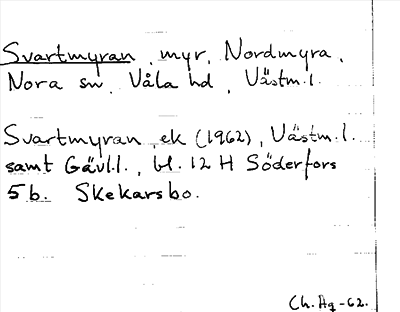 Svartmyran, myr, Nordmyra,
Nora sn, Våla hd, Västm.l.
Svartmyran ek (1962), Västm.l.
samt Gävl.l., bl. 12 H Söderfors
5 b. Skekarsbo.
Ch. Ag -62.